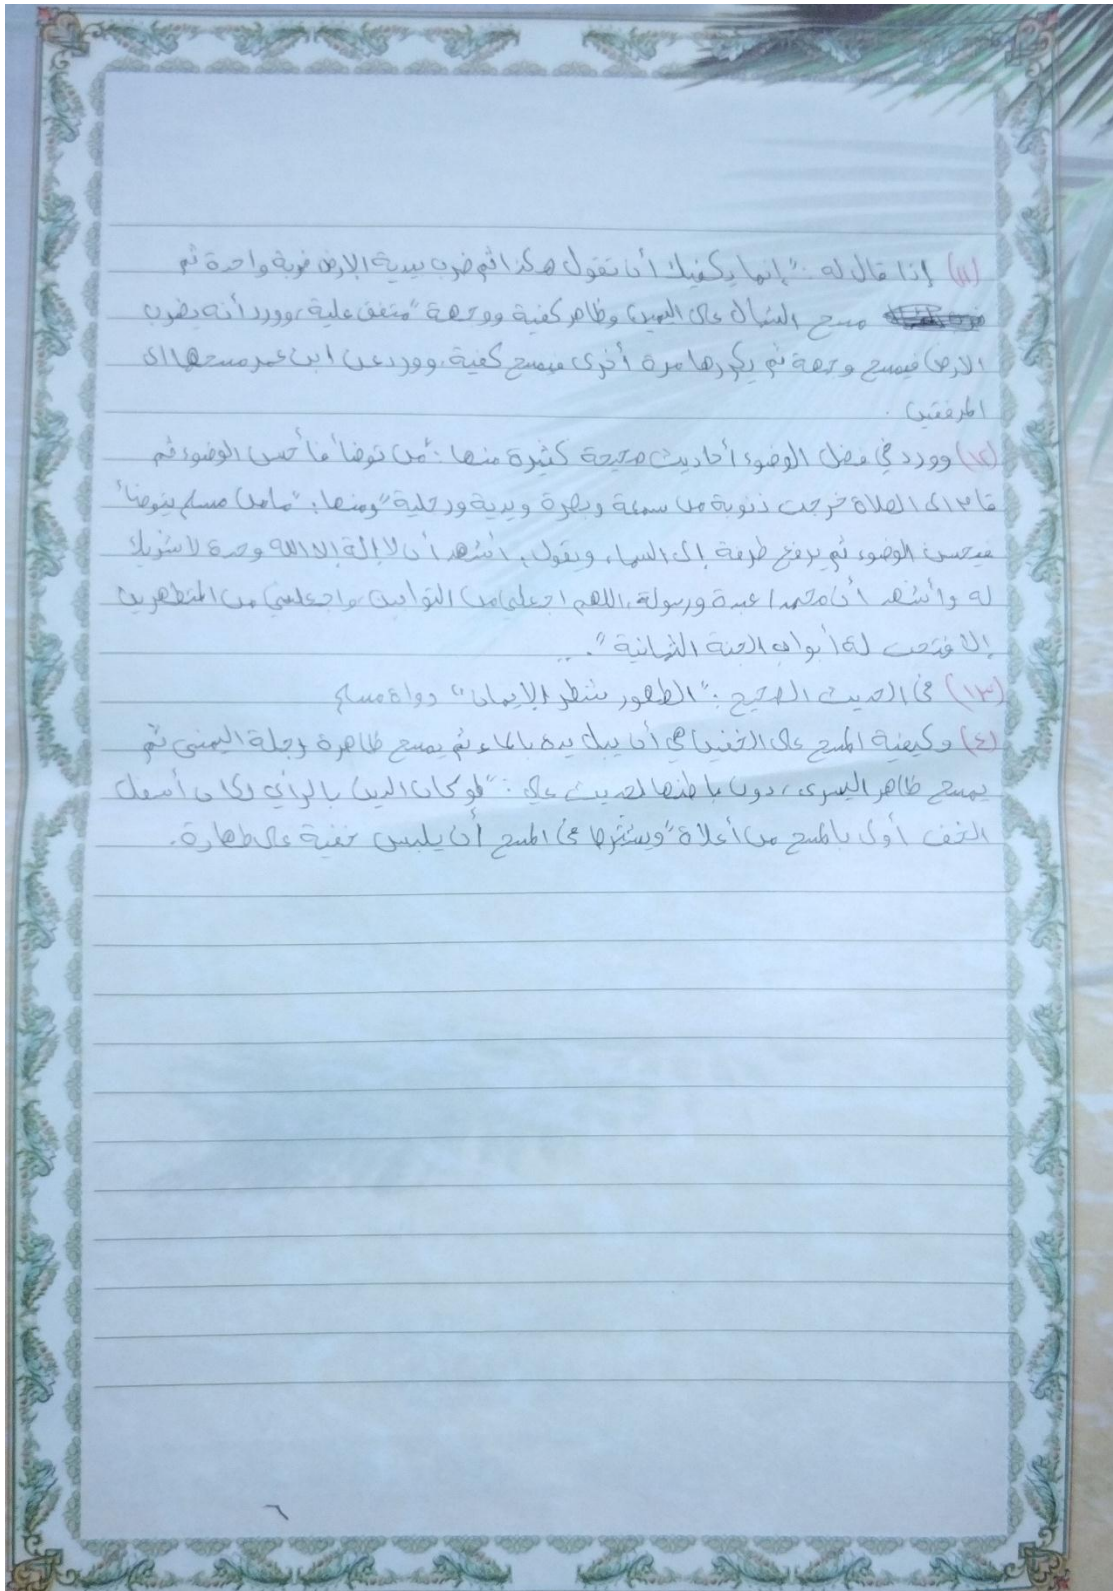 (١١) إذا قال له: "إنما يكفيك أن تقول هكذا ثم ضرب بيدية الارض ضربة واحدة ثم
مسح الشمال على اليمين وظاهر كفية ووجهة" متفق علية، وورد أنه يضرب
الارض فيمسح وجهة ثم يكررها مرة أخرى فيمسح كفية، وورد عن ابن عمر مسحها الى
المرفقين.
(١٢) وورد في فضل الوضوء أحاديث صحيحة كثيرة منها: "من توضأ فأحسن الوضوء ثم
قام الى الصلاة خرجت ذنوبة من سمعة وبصرة ويدية ورجلية" ومنها: "ما من مسلم يتوضأ
فيحسن الوضوء ثم يرفع طرفة إلى السماء ويقول: أشهد أن لا إلة إلا الله وحدة لا شريك
له وأشهد أن محمدا عبدة ورسولة، اللهم اجعلني من التوابين واجعلني من المتطهرين
إلا فتحت لة أبواب الجنة الثمانية".
(١٣) في الحديث الصحيح: "الطهور شطر الإيمان" رواة مسلم
(٤) وكيفية المسح على الخفين هي أن يبلل يدة بالماء ثم يمسح ظاهرة رجلة اليمنى ثم
يمسح ظاهر اليسرى، دون باطنها لحديث علي: "لو كان الدين بالرأي لكان أسفل
الخف أولى بالمسح من أعلاة" ويشترط في المسح أن يلبس خفية على طهارة.
٦